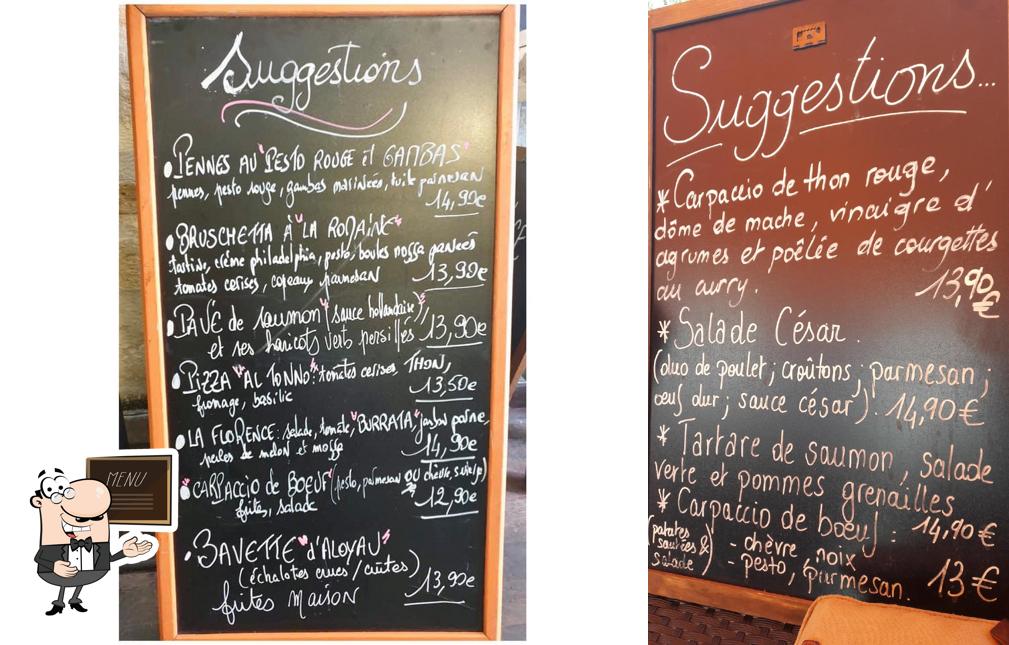 Suggestions
PENNES AU "PESTO ROUGE et GAMBAS"
pennes, pesto rouge, gambas marinées, tuile parmesan
14,90e
BRUSCHETTA À "LA ROMAINE"
tartine, crème philadelphia, pesto, boules mozza panées
tomates cerises, copeaux parmesan 13,90e
PAVÉ de saumon (sauce hollandaise),
et ses haricots verts persillés 13,90e
PIZZA "AL TONNO": tomates cerises, THON,
fromage, basilic 13,50e
LA FLORENCE: salade, tomate, "BURRATA", jambon parme,
perles de melon et mozza 14,90e
"CARPACCIO de BOEUF" (pesto, parmesan OU chèvre,
frites, salade 12,90e
BAVETTE "d'ALOYAU"
(échalotes crues / cuites)
frites maison 13,90e
MENU
Suggestions...
* Carpaccio de thon rouge,
dôme de mache, vinaigre d'
agrumes et poêlée de courgettes
au curry. 13,90€
* Salade César.
(duo de poulet; croûtons; parmesan;
oeuf dur; sauce césar). 14,90€
* Tartare de saumon, salade
verte et pommes grenailles
14,90€
* Carpaccio de boeuf:
(patates sautées & salade)
- chèvre, noix
- pesto, parmesan. 13€